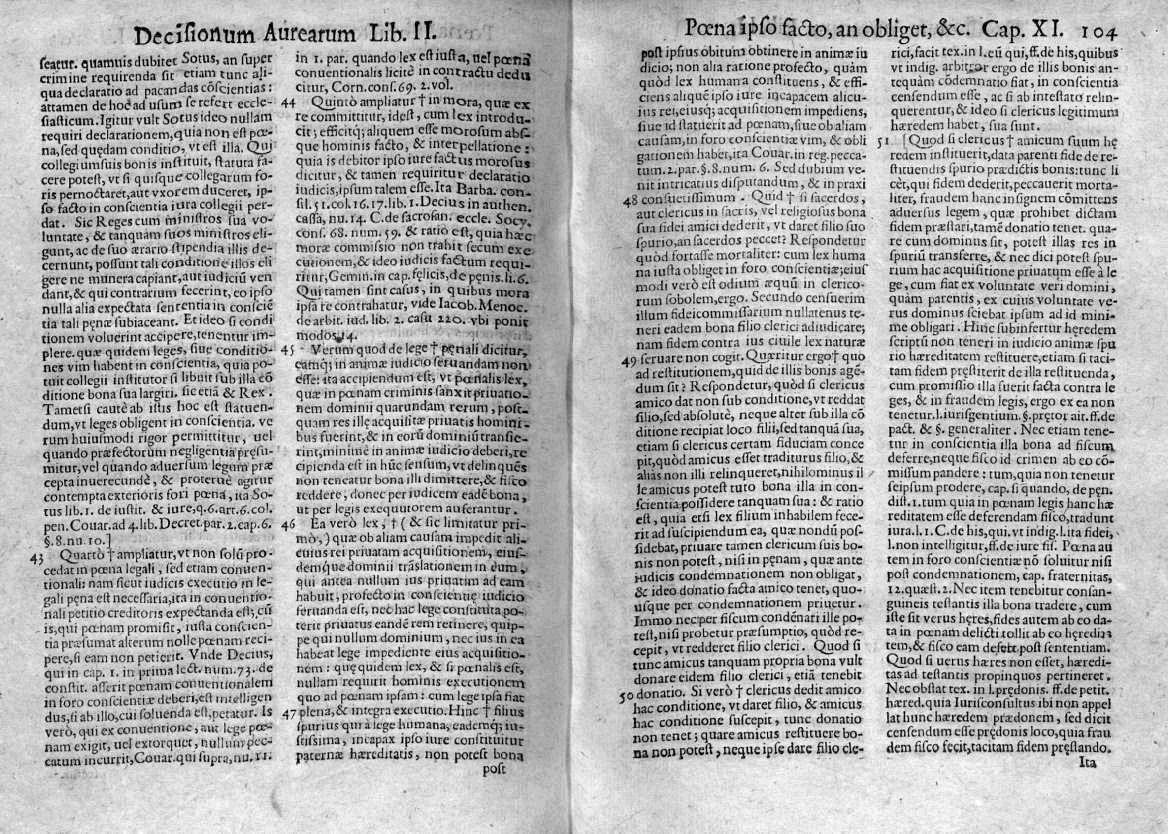 Decisionum Aurearum Lib. II.
seatur. quamuis dubitet Sotus, an super
crimine requirenda sit etiam tunc ali-
qua declaratio ad pacandas cōscientias:
attamen de hoc ad usum se refert eccle-
siasticum. Igitur vult Sotus ideo nullam
requiri declarationem, quia non est pœ-
na, sed quędam conditio, vt est illa. Qui
collegium suis bonis instituit, statura fa-
cere potest, vt si quisque collegarum fo-
ris pernoctaret, aut vxorem duceret, ip-
so facto in conscientia iura collegij per-
dat. Sic Reges cum ministros sua vo-
luntate, & tanquam suos ministros eli-
gunt, ac de suo ærario stipendia illis de-
cernunt, possunt tali conditione illos eli
gere ne munera capiant, aut iudiciū ven
dant, & qui contrarium fecerint, eo ipso
nulla alia expectata sententia in conscień
tia tali pęnæ subiaceant. Et ideo si condi
tionem voluerint accipere, tenentur im-
plere. quæ quidem leges, siue conditio-
nes vim habent in conscientia, quia po-
tuit collegii institutor si libuit sub illa cō
ditione bona sua largiri. sic etiā & Rex.
Tametsi cautè ab istis hoc est statuen-
dum, vt leges obligent in conscientia. ve
rum huiusmodi rigor permittitur, uel
quando præfectorum negligentia pręsu-
mitur, vel quando aduersum legum præ
cepta inuerecundè, & proteruè agitur
contempta exterioris fori pœna, ita So-
tus lib. 1. de iustit. & iure, q. 6. art. 6. col.
pen. Couar. ad 4. lib. Decret. par. 2. cap. 6.
§. 8. nu. 10.]
43 Quartò † ampliatur, vt non solū pro-
cedat in pœna legali, sed etiam conuen-
tionali: nam sicut iudicis executio in le-
gali pęna est necessaria, ita in conuentio-
nali petitio creditoris expectanda est; cū
is, qui pœnam promisit, iusta conscien-
tia præsumat alterum nolle pœnam reci-
pere, si eam non petierit. Vnde Decius,
qui in cap. 1. in prima lect. num. 73. de
constit. asserit pœnam conuentionalem
in foro conscientiæ deberi, est intelligen
dus, si ab illo, cui soluenda est, petatur. Is
verò, qui ex conuentione, aut lege pœ-
nam exigit, uel extorquet, nullum pec-
catum incurrit, Couar. qui supra, nu. 11.
in 1. par. quando lex est iusta, uel pœna
conuentionalis licitè in contractu dedu
citur, Corn. cons. 69. 2. vol.
44 Quintò ampliatur † in mora, quæ ex
re committitur, idest, cum lex introdu-
cit; efficitq; aliquem esse morosum abs-
que hominis facto, & interpellatione:
quia is debitor ipso iure factus morosus
dicitur, & tamen requiritur declaratio
iudicis, ipsum talem esse. Ita Barba. con-
sil. 51. col. 16. 17. lib. 1. Decius in authen.
cassa, nu. 14. C. de sacrosan. eccle. Socy.
cons. 68. num. 59. & ratio est, quia hæc
moræ commissio non trahit secum exe
cutionem, & ideo iudicis factum requi-
ritur, Gemin. in cap. fęlicis, de pęnis. li. 6.
Qui tamen sint casus, in quibus mora
ipsa re contrahatur, vide Iacob. Menoc.
de arbit. iud. lib. 2. casu 220. vbi ponit
modos 14.
45 Verum quod de lege † pęnali dicitur,
eamq; in animæ iudicio seruandam non
esse: ita accipiendum est, vt pœnalis lex,
quæ in pœnam criminis sanxit priuatio-
nem dominii quarundam rerum, post-
quam res illę acquisitæ priuatis homini-
bus fuerint, & in eorū dominiū transie-
rint, minimè in animæ iudicio deberi, re
cipienda est in hūc sensum, vt delinquēs
non teneatur bona illi dimittere, & fisco
reddere, donec per iudicem eadē bona,
ut per legis exequutorem auferantur.
46 Ea verò lex, † (& sic limitatur pri-
mò,) quæ ob aliam causam impedit ali-
cuius rei priuatam acquisitionem, eius-
demque dominii trāslationem in eum,
qui antea nullum ius priuatim ad eam
habuit, profecto in conscientiæ iudicio
seruanda est, nec hac lege constituta po-
terit priuatus eandē rem retinere, quip-
pe qui nullum dominium, nec ius in ea
habeat lege impediente eius acquisitio-
nem: quę quidem lex, & si pœnalis est,
nullam requirit hominis executionem
quo ad pœnam ipsam: cum lege ipsa fiat
47 plena, & integra executio. Hinc † filius
spurius qui à lege humana, eademq; iu-
stissima, incapax ipso iure constituitur
paternæ hæreditatis, non potest bona
post
Pœna ipso facto, an obliget, &c. Cap. XI. 104
post ipsius obitum obtinere in animæ iu
dicio; non alia ratione profecto, quàm
quòd lex humana constituens, & effi-
ciens aliquē ipso iure incapacem alicu-
ius rei, eiusq; acquisitionem impediens,
siue id statuerit ad pœnam, siue ob aliam
causam, in foro conscientiæ vim, & obli
gationem habet, ita Couar. in reg. pecca-
tum. 2. par. §. 8. num. 6. Sed dubium ve-
nit intricatius disputandum, & in praxi
48 consuetissimum. Quid † si sacerdos,
aut clericus in sacris, vel religiosus bona
sua fidei amici dederit, vt daret filio suo
spurio, an sacerdos peccet? Respondetur
quòd fortasse mortaliter: cum lex huma
na iusta obliget in foro conscientiæ; eius
modi verò est odium æquū in clerico-
rum sobolem, ergo. Secundo censuerim
illum fideicommissarium nullatenus te-
neri eadem bona filio clerici adiudicare;
nam fidem contra ius ciuile lex naturæ
49 seruare non cogit. Quæritur ergo † quo
ad restitutionem, quid de illis bonis agē-
dum sit? Respondetur, quòd si clericus
amico dat non sub conditione, vt reddat
filio, sed absolutè, neque alter sub illa cō
ditione recipiat loco filii, sed tanquā sua,
etiam si clericus certam fiduciam conce
pit, quòd amicus esset traditurus filio, &
aliàs non illi relinqueret, nihilominus il
le amicus potest tuto bona illa in con-
scientia possidere tanquam sua: & ratio
est, quia etsi lex filium inhabilem fece-
rit ad suscipiendum ea, quæ nondū pos-
sidebat, priuare tamen clericum suis bo-
nis non potest, nisi in pęnam, quæ ante
iudicis condemnationem non obligat,
& ideo donatio facta amico tenet, quo-
usque per condemnationem priuetur.
Immo nec per fiscum condēnari ille po-
test, nisi probetur præsumptio, quòd re-
cepit, vt redderet filio clerici. Quod si
tunc amicus tanquam propria bona vult
donare eidem filio clerici, etiā tenebit
50 donatio. Si verò † clericus dedit amico
hac conditione, vt daret filio, & amicus
hac conditione suscepit, tunc donatio
non tenet; quare amicus restituere bo-
na non potest, neque ipse dare filio cle-
rici, facit tex. in l. eū qui, ff. de his, quibus
vt indig. arbitror ergo de illis bonis an-
tequàm cōdemnatio fiat, in conscientia
censendum esse, ac si ab intestato relin-
querentur, & ideo si clericus legitimum
hæredem habet, sua sunt.
51 [Quod si clericus † amicum suum hę
redem instituerit, data parenti fide de re-
stituendis spurio prædictis bonis: tunc li
cèt, qui fidem dederit, peccauerit morta-
liter, fraudem hanc insignem cōmittens
aduersus legem, quæ prohibet dictam
fidem præstari, tamē donatio tenet. qua-
re cum dominus sit, potest illas res in
spuriū transferre, & nec dici potest spu-
rium hac acquisitione priuatum esse à le
ge, cum fiat ex voluntate veri domini,
quàm parentis, ex cuius voluntate ve-
rus dominus sciebat ipsum ad id mini-
me obligari. Hinc subinfertur hęredem
scriptū non teneri in iudicio animæ spu
rio hæreditatem restituere, etiam si taci-
tam fidem pręstiterit de illa restituenda,
cum promissio illa fuerit facta contra le
ges, & in fraudem legis, ergo ex ea non
tenetur. l. iurisgentium. §. pretor ait. ff. de
pact. & §. generaliter. Nec etiam tene-
tur in conscientia illa bona ad fiscum
deferre, neque fisco id crimen ab eo cō-
missum pandere: tum, quia non tenetur
seipsum prodere, cap. si quando, de pęn.
dist. 1. tum quia in pœnam legis hanc hæ
reditatem esse deferendam fisco, tradunt
iura. l. 1. C. de his, qui, vt indig. l. ita fidei,
l. non intelligitur, ff. de iure fis. Pœna au
tem in foro conscientiæ nō soluitur nisi
post condemnationem, cap. fraternitas,
12. quæst. 2. Nec item tenebitur consan-
guineis testantis illa bona tradere, cum
iste sit verus hęres, fides autem ab eo da-
ta in pœnam delicti tollit ab eo hęredita
tem, & fisco eam defert post sententiam.
Quod si uerus hæres non esset, hæredi-
tas ad testantis propinquos pertineret.
Nec obstat tex. in l. prędonis. ff. de petit.
hæred. quia Iurisconsultus ibi non appel
lat hunc hæredem prædonem, sed dicit
censendum esse prędonis loco, quia frau
dem fisco fecit, tacitam fidem pręstando.
Ita